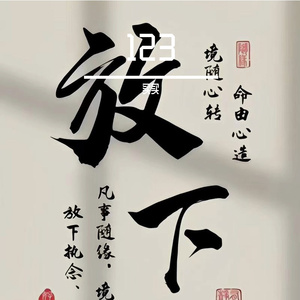 123
命由心造
境随心转
放下
凡事随缘。境
放下执念、